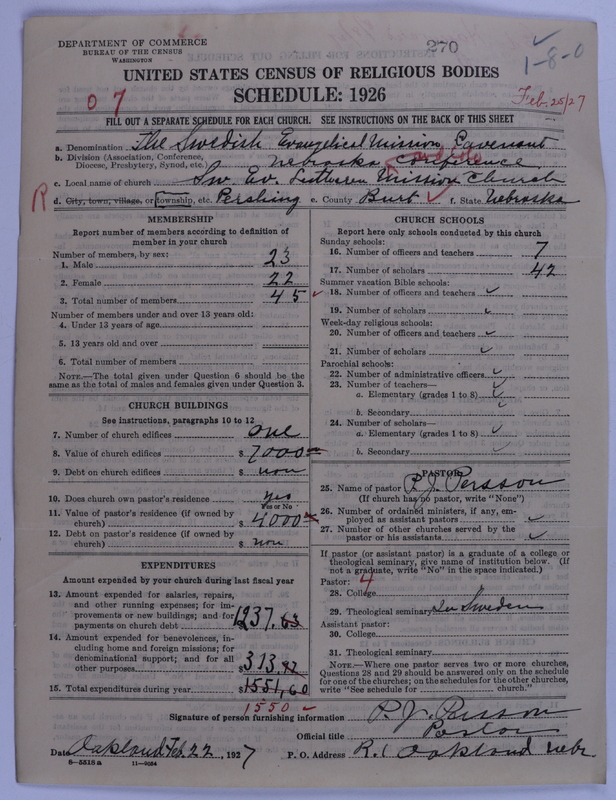 DEPARTMENT OF COMMERCE
BUREAU OF THE CENSUS
WASHINGTON
270
1-8-0
UNITED STATES CENSUS OF RELIGIOUS BODIES
SCHEDULE: 1926
07
Feb. 25/27
FILL OUT A SEPARATE SCHEDULE FOR EACH CHURCH. SEE INSTRUCTIONS ON THE BACK OF THIS SHEET
a. Denomination The Swedish Evangelical Mission Covenant
b. Division (Association, Conference, Diocese, Presbytery, Synod, etc.) Nebraska Conference
c. Local name of church Sw. Ev. Lutheran Mission Church
R d. City, town, village, or township, etc. Pershing e. County Burt f. State Nebraska
MEMBERSHIP
Report number of members according to definition of member in your church
Number of members, by sex:
1. Male 23
2. Female 22
3. Total number of members 45
Number of members under and over 13 years old:
4. Under 13 years of age
5. 13 years old and over
6. Total number of members
NOTE.—The total given under Question 6 should be the same as the total of males and females given under Question 3.
CHURCH BUILDINGS
See instructions, paragraphs 10 to 12
7. Number of church edifices one
8. Value of church edifices $ 7000
9. Debt on church edifices $ non
10. Does church own pastor's residence yes
Yes or No
11. Value of pastor's residence (if owned by church) $ 4000
12. Debt on pastor's residence (if owned by church) $ non
EXPENDITURES
Amount expended by your church during last fiscal year
13. Amount expended for salaries, repairs, and other running expenses; for improvements or new buildings; and for payments on church debt 1237.63
14. Amount expended for benevolences, including home and foreign missions; for denominational support; and for all other purposes $ 313.97
15. Total expenditures during year $ 1551,60
1550
CHURCH SCHOOLS
Report here only schools conducted by this church
Sunday schools:
16. Number of officers and teachers 7
17. Number of scholars 42
Summer vacation Bible schools:
18. Number of officers and teachers
19. Number of scholars
Week-day religious schools:
20. Number of officers and teachers
21. Number of scholars
Parochial schools:
22. Number of administrative officers
23. Number of teachers—
a. Elementary (grades 1 to 8)
b. Secondary
24. Number of scholars—
a. Elementary (grades 1 to 8)
b. Secondary
PASTOR
25. Name of pastor P. J. Persson
(If church has no pastor, write "None")
26. Number of ordained ministers, if any, employed as assistant pastors
27. Number of other churches served by the pastor or his assistants
If pastor (or assistant pastor) is a graduate of a college or theological seminary, give name of institution below. (If not a graduate, write "No" in the space indicated.)
Pastor: 4
28. College
29. Theological seminary In Sweden
Assistant pastor:
30. College
31. Theological seminary
NOTE.—Where one pastor serves two or more churches, Questions 28 and 29 should be answered only on the schedule for one of the churches; on the schedules for the other churches, write "See schedule for church."
Signature of person furnishing information P. J. Persson
Official title Pastor
Date Oakland Feb. 22, 1927 P. O. Address R. 1 Oakland Nebr.
8—5518a 11—9084